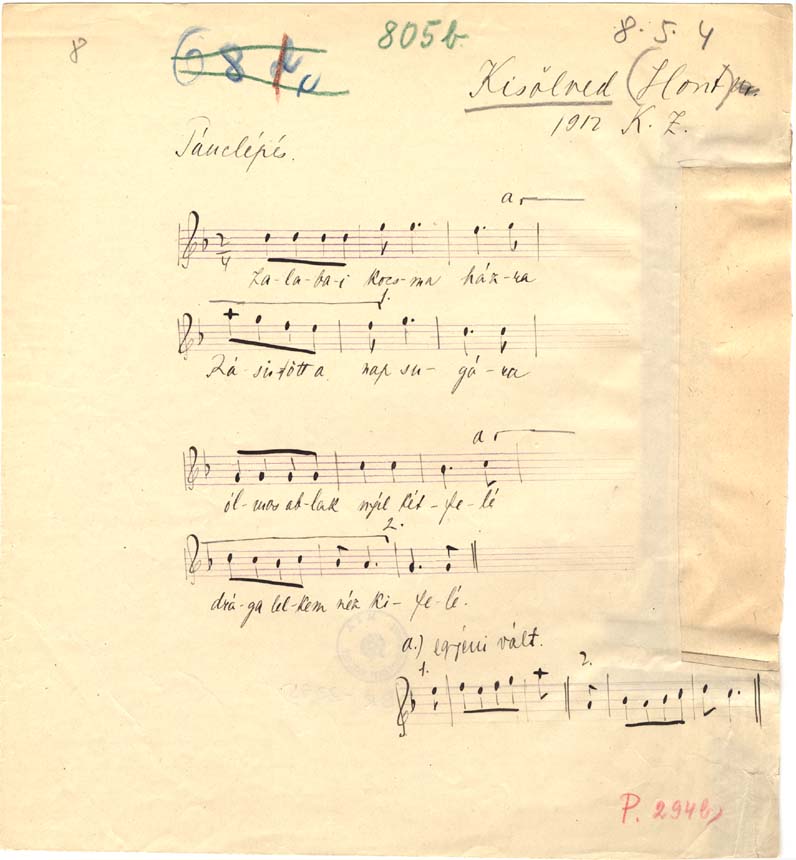 8
805b.
8. 5. 4
Kisölved (Hont)
1912 K. Z.
Tánclépés.
a.
2
4
Za-la-ba-i kocs-ma ház-ra
1.
Rá-sü-tött a nap su-gá-ra
a.
ól-mos ab-lak nyíl két-fe-lé
2.
drá-ga lel-kem néz ki-fe-lé.
a.) egyéni vált.
1. 2.
P. 294b)